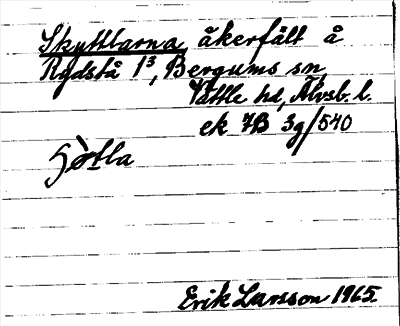 Skyttlarna, åkerfält å
Rydstå 1³, Bergums sn
Vättle hd, Älvsb. l.
ek 7B 3g/540
Erik Larsson 1965.